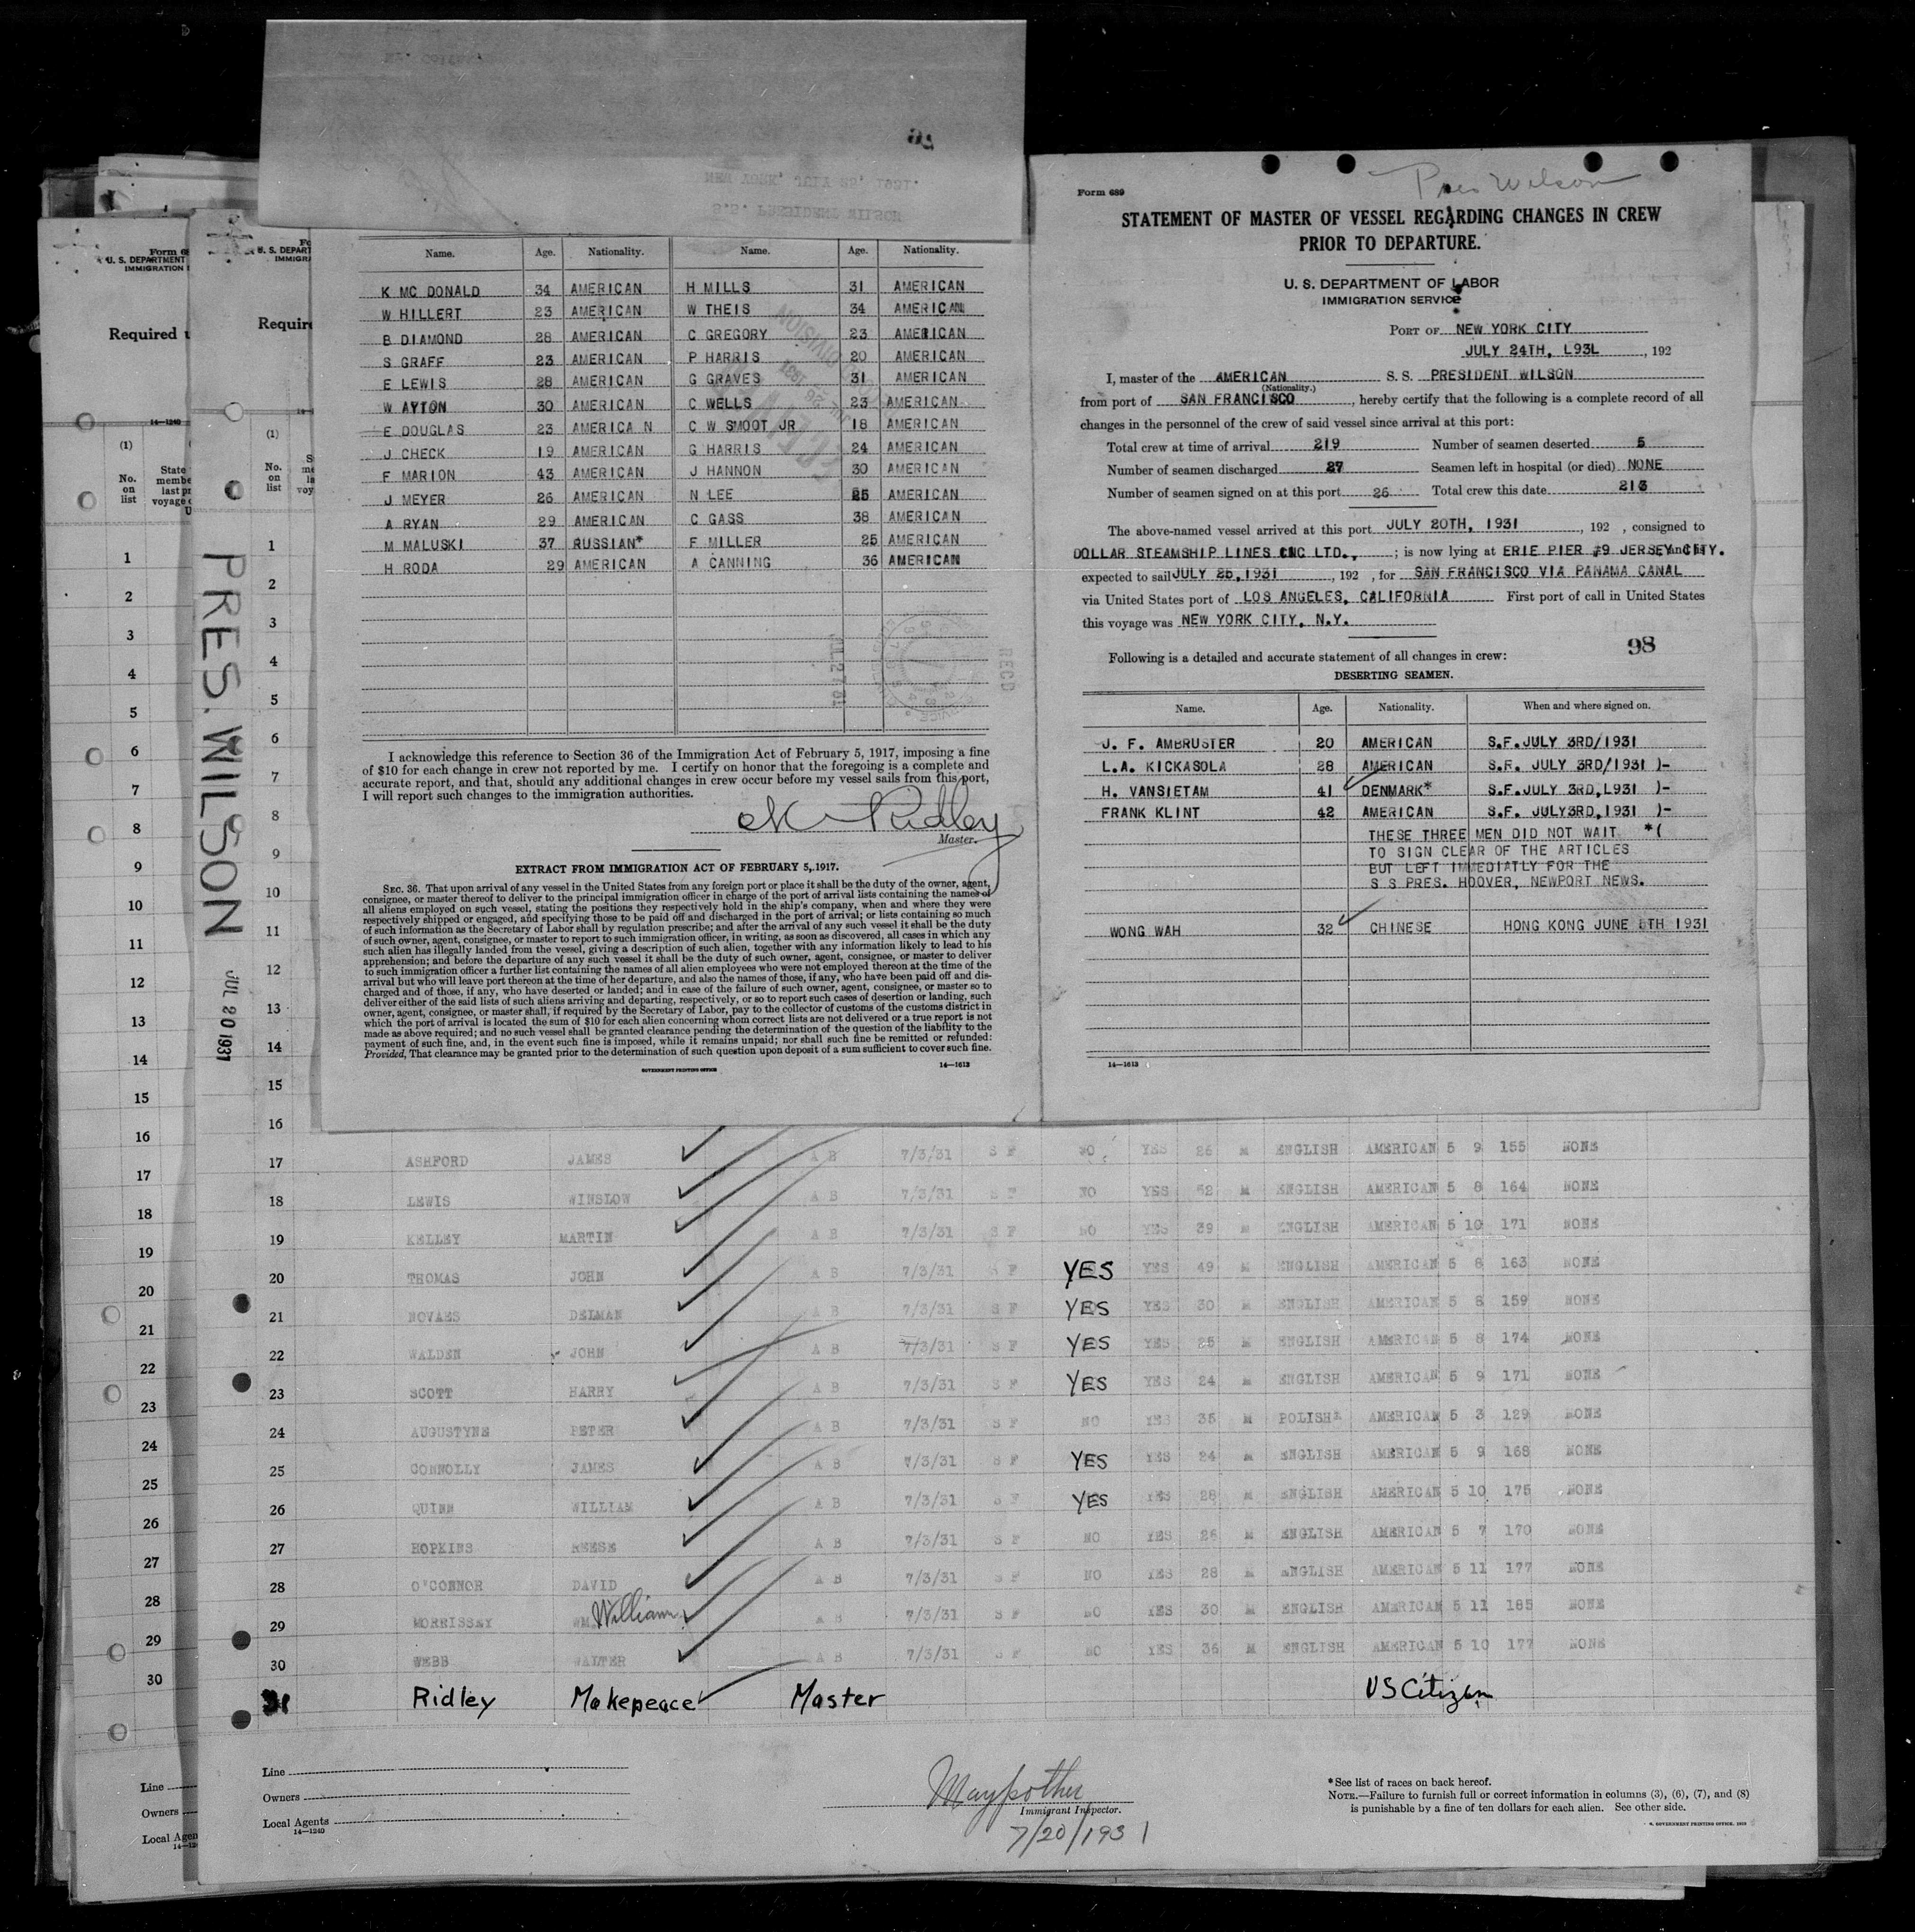 Form 689
Pres Wilson
STATEMENT OF MASTER OF VESSEL REGARDING CHANGES IN CREW
PRIOR TO DEPARTURE.
U. S. DEPARTMENT OF LABOR
IMMIGRATION SERVICE
PORT OF NEW YORK CITY
JULY 24TH, L93L, 192
I, master of the AMERICAN S. S. PRESIDENT WILSON
(Nationality.)
from port of SAN FRANCISCO, hereby certify that the following is a complete record of all
changes in the personnel of the crew of said vessel since arrival at this port:
Total crew at time of arrival 219 Number of seamen deserted 5
Number of seamen discharged 27 Seamen left in hospital (or died) NONE
Number of seamen signed on at this port 26 Total crew this date 213
The above-named vessel arrived at this port JULY 20TH, 1931, 192 , consigned to
DOLLAR STEAMSHIP LINES INC LTD., ; is now lying at ERIE PIER #9 JERSEY CITY.
expected to sail JULY 25,1931, 192 , for SAN FRANCISCO VIA PANAMA CANAL
via United States port of LOS ANGELES, CALIFORNIA First port of call in United States
this voyage was NEW YORK CITY, N.Y.
98
Following is a detailed and accurate statement of all changes in crew:
DESERTING SEAMEN.
Name. Age. Nationality. When and where signed on.
J. F. AMBRUSTER 20 AMERICAN S.F. JULY 3RD/1931
L.A. KICKASOLA 28 AMERICAN S.F. JULY 3RD/1931 )-
H. VANSIETAM 41 DENMARK* S.F.JULY 3RD,L931 )-
FRANK KLINT 42 AMERICAN S.F. JULY3RD,1931 )-
THESE THREE MEN DID NOT WAIT *(
TO SIGN CLEAR OF THE ARTICLES
BUT LEFT IMMEDIATLY FOR THE
S S PRES. HOOVER, NEWPORT NEWS.
WONG WAH 32 CHINESE HONG KONG JUNE 8TH 1931
14—1613
Name. Age. Nationality. Name. Age. Nationality.
K MC DONALD 34 AMERICAN H MILLS 31 AMERICAN
W HILLERT 23 AMERICAN W THEIS 34 AMERICAN
B DIAMOND 28 AMERICAN C GREGORY 23 AMERICAN
S GRAFF 23 AMERICAN P HARRIS 20 AMERICAN
E LEWIS 28 AMERICAN G GRAVES 31 AMERICAN
W AYTON 30 AMERICAN C WELLS 23 AMERICAN
E DOUGLAS 23 AMERICA N C W SMOOT JR 18 AMERICAN
J CHECK 19 AMERICAN G HARRIS 24 AMERICAN
F MARION 43 AMERICAN J HANNON 30 AMERICAN
J MEYER 26 AMERICAN N LEE 25 AMERICAN
A RYAN 29 AMERICAN C GASS 38 AMERICAN
M MALUSKI 37 RUSSIAN* F MILLER 25 AMERICAN
H RODA 29 AMERICAN A CANNING 36 AMERICAN
RECD
I acknowledge this reference to Section 36 of the Immigration Act of February 5, 1917, imposing a fine
of $10 for each change in crew not reported by me. I certify on honor that the foregoing is a complete and
accurate report, and that, should any additional changes in crew occur before my vessel sails from this port,
I will report such changes to the immigration authorities.
Ridley
Master.
EXTRACT FROM IMMIGRATION ACT OF FEBRUARY 5, 1917.
SEC. 36. That upon arrival of any vessel in the United States from any foreign port or place it shall be the duty of the owner, agent,
consignee, or master thereof to deliver to the principal immigration officer in charge of the port of arrival lists containing the names of
all aliens employed on such vessel, stating the positions they respectively hold in the ship's company, when and where they were
respectively shipped or engaged, and specifying those to be paid off and discharged in the port of arrival; or lists containing so much
of such information as the Secretary of Labor shall by regulation prescribe; and after the arrival of any such vessel it shall be the duty
of such owner, agent, consignee, or master to report to such immigration officer, in writing, as soon as discovered, all cases in which any
such alien has illegally landed from the vessel, giving a description of such alien, together with any information likely to lead to his
apprehension; and before the departure of any such vessel it shall be the duty of such owner, agent, consignee, or master to deliver
to such immigration officer a further list containing the names of all alien employees who were not employed thereon at the time of the
arrival but who will leave port thereon at the time of her departure, and also the names of those, if any, who have been paid off and dis-
charged and of those, if any, who have deserted or landed; and in case of the failure of such owner, agent, consignee, or master so to
deliver either of the said lists of such aliens arriving and departing, respectively, or so to report such cases of desertion or landing, such
owner, agent, consignee, or master shall, if required by the Secretary of Labor, pay to the collector of customs of the customs district in
which the port of arrival is located the sum of $10 for each alien concerning whom correct lists are not delivered or a true report is not
made as above required; and no such vessel shall be granted clearance pending the determination of the question of the liability to the
payment of such fine, and, in the event such fine is imposed, while it remains unpaid; nor shall such fine be remitted or refunded:
Provided, That clearance may be granted prior to the determination of such question upon deposit of a sum sufficient to cover such fine.
GOVERNMENT PRINTING OFFICE 14—1613
U. S. DEPARTMENT
Required
14—1240
(1)
No.
on
list
PRES. WILSON
JUL 20 1931
1
2
3
4
5
6
7
8
9
10
11
12
13
14
15
16
17 ASHFORD JAMES A B 7/3/31 S F NO YES 26 M ENGLISH AMERICAN 5 9 155 NONE
18 LEWIS WINSLOW A B 7/3/31 S F NO YES 52 M ENGLISH AMERICAN 5 8 164 NONE
19 KELLEY MARTIN A B 7/3/31 S F NO YES 39 M ENGLISH AMERICAN 5 10 171 NONE
20 THOMAS JOHN A B 7/3/31 S F YES YES 49 M ENGLISH AMERICAN 5 8 163 NONE
21 NOVAES DELMAN A B 7/3/31 S F YES YES 30 M ENGLISH AMERICAN 5 8 159 NONE
22 WALDEN JOHN A B 7/3/31 S F YES YES 25 M ENGLISH AMERICAN 5 8 174 NONE
23 SCOTT HARRY A B 7/3/31 S F YES YES 24 M ENGLISH AMERICAN 5 9 171 NONE
24 AUGUSTYNE PETER A B 7/3/31 S F NO YES 35 M POLISH* AMERICAN 5 3 129 NONE
25 CONNOLLY JAMES A B 7/3/31 S F YES YES 24 M ENGLISH AMERICAN 5 9 168 NONE
26 QUINN WILLIAM A B 7/3/31 S F YES YES 28 M ENGLISH AMERICAN 5 10 175 NONE
27 HOPKINS REESE A B 7/3/31 S F NO YES 26 M ENGLISH AMERICAN 5 7 170 NONE
28 O'CONNOR DAVID A B 7/3/31 S F NO YES 28 M ENGLISH AMERICAN 5 11 177 NONE
29 MORRISSEY WM William A B 7/3/31 S F NO YES 30 M ENGLISH AMERICAN 5 11 185 NONE
30 WEBB WALTER A B 7/3/31 S F NO YES 36 M ENGLISH AMERICAN 5 10 177 NONE
31 Ridley Makepeace Master US Citizen
Line
Owners
Local Agents
14—1240
Immigrant Inspector.
7/20/1931
*See list of races on back hereof.
NOTE.—Failure to furnish full or correct information in columns (3), (6), (7), and (8)
is punishable by a fine of ten dollars for each alien. See other side.